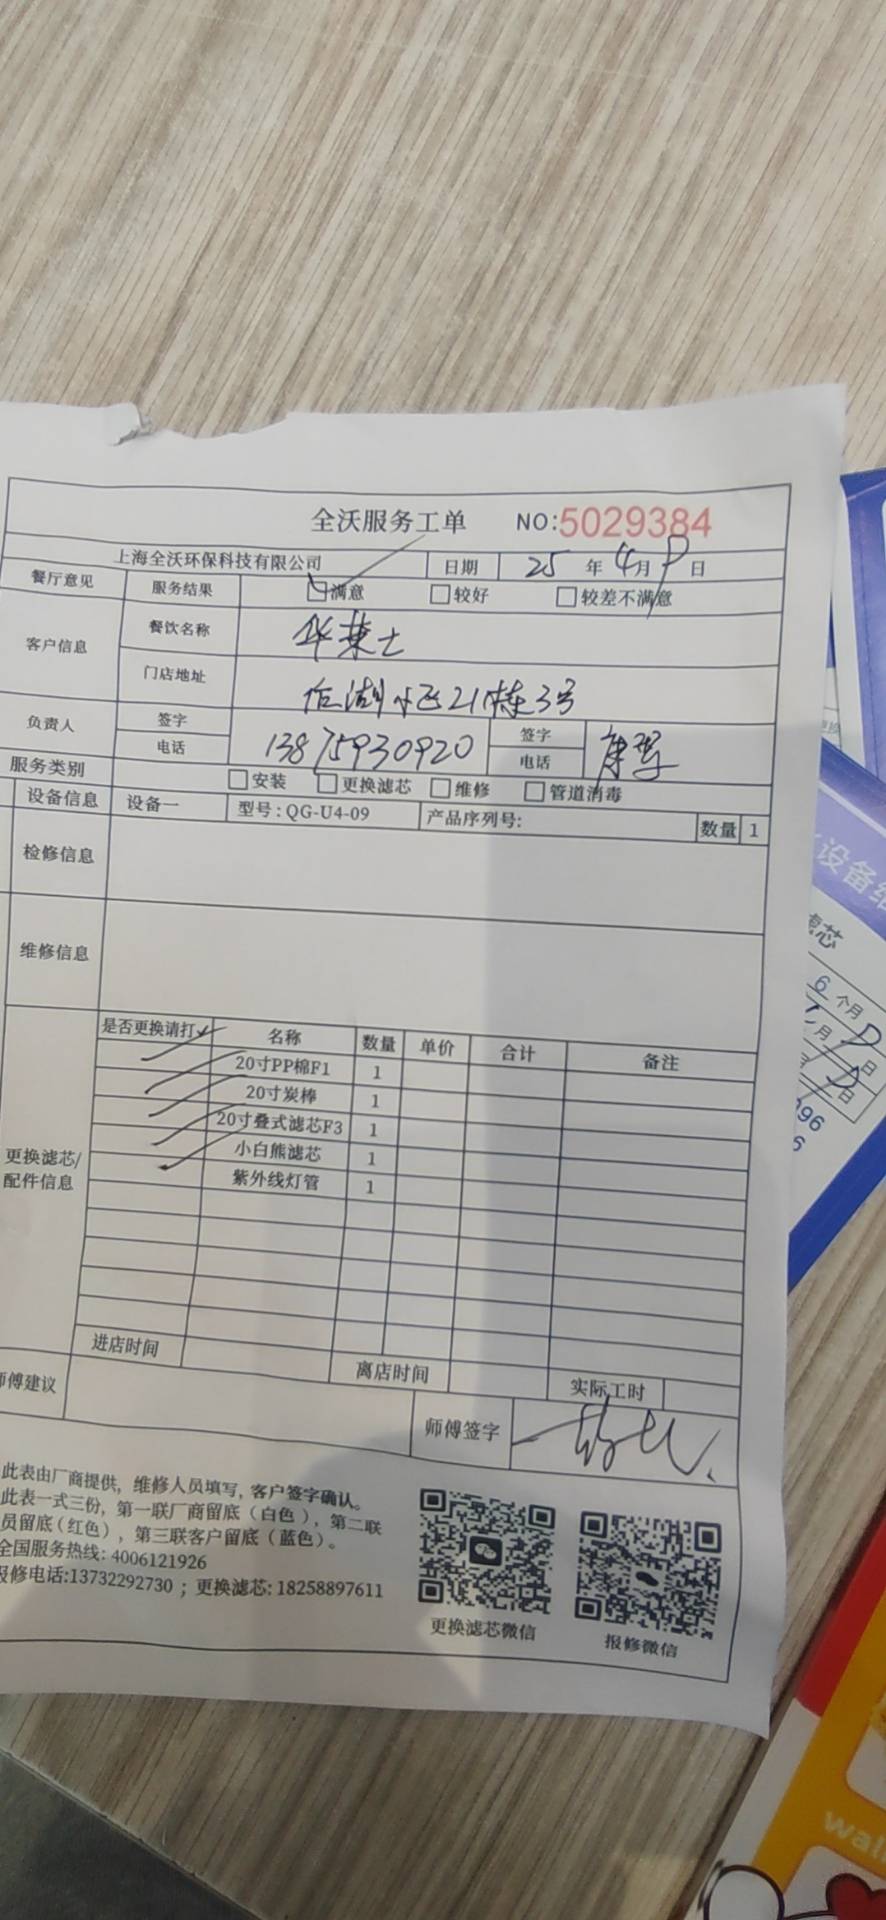 全沃服务工单 NO:5029384
上海全沃环保科技有限公司 日期 25 年 4月 9日
餐厅意见 服务结果 满意 较好 较差不满意
客户信息 餐饮名称 华莱士
门店地址 小区21栋3号
负责人 签字 签字
电话 13875930920 电话
服务类别 安装 更换滤芯 维修 管道消毒
设备信息 设备一 型号:QG-U4-09 产品序列号: 数量 1
检修信息
维修信息
是否更换请打✓ 名称 数量 单价 合计 备注
20寸PP棉F1 1
20寸炭棒 1
20寸叠式滤芯F3 1
小白熊滤芯 1
紫外线灯管 1
更换滤芯/
配件信息
进店时间 离店时间 实际工时
师傅建议 师傅签字
此表由厂商提供, 维修人员填写, 客户签字确认。
此表一式三份, 第一联厂商留底(白色), 第二联
员留底(红色), 第三联客户留底(蓝色)。
全国服务热线: 4006121926
报修电话:13732292730 ; 更换滤芯: 18258897611
更换滤芯微信 报修微信
设备
滤芯
6 个月
月 日
日
96
6
wal